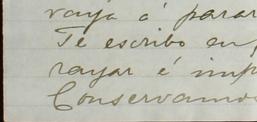 vaya á parar
Te escribo en
rayar é imp
Conservamos